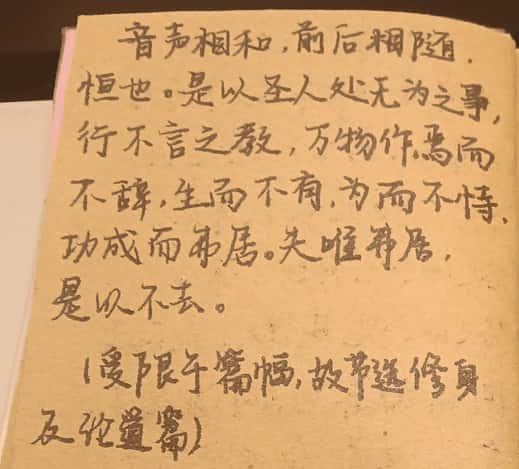 音声相和，前后相随，
恒也。是以圣人处无为之事，
行不言之教，万物作焉而
不辞，生而不有，为而不恃，
功成而弗居。夫唯弗居，
是以不去。
（受限于篇幅，故节选修身
及论道篇）